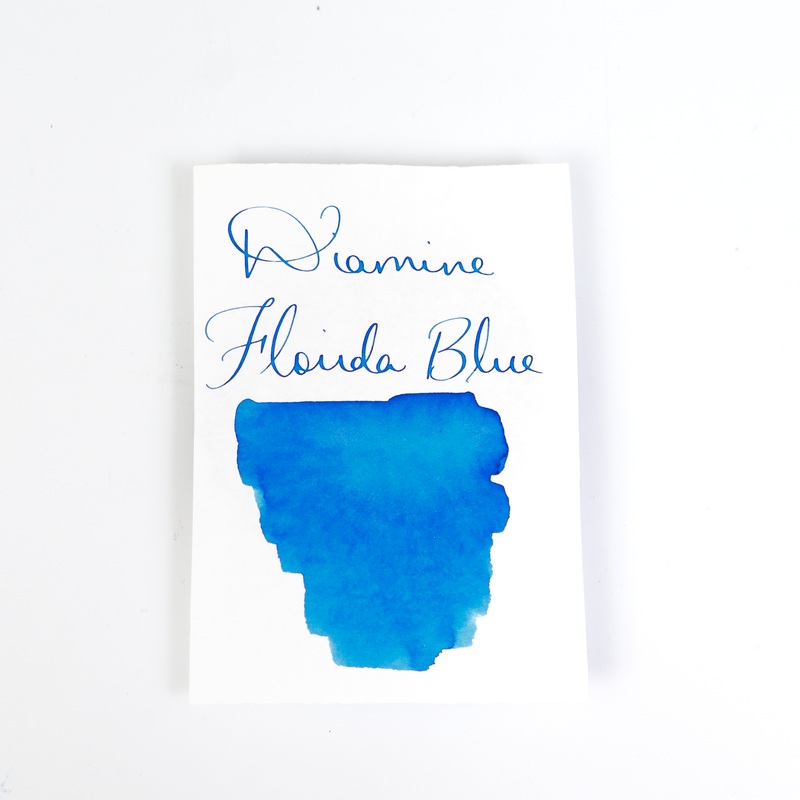 Diamine
Florida Blue